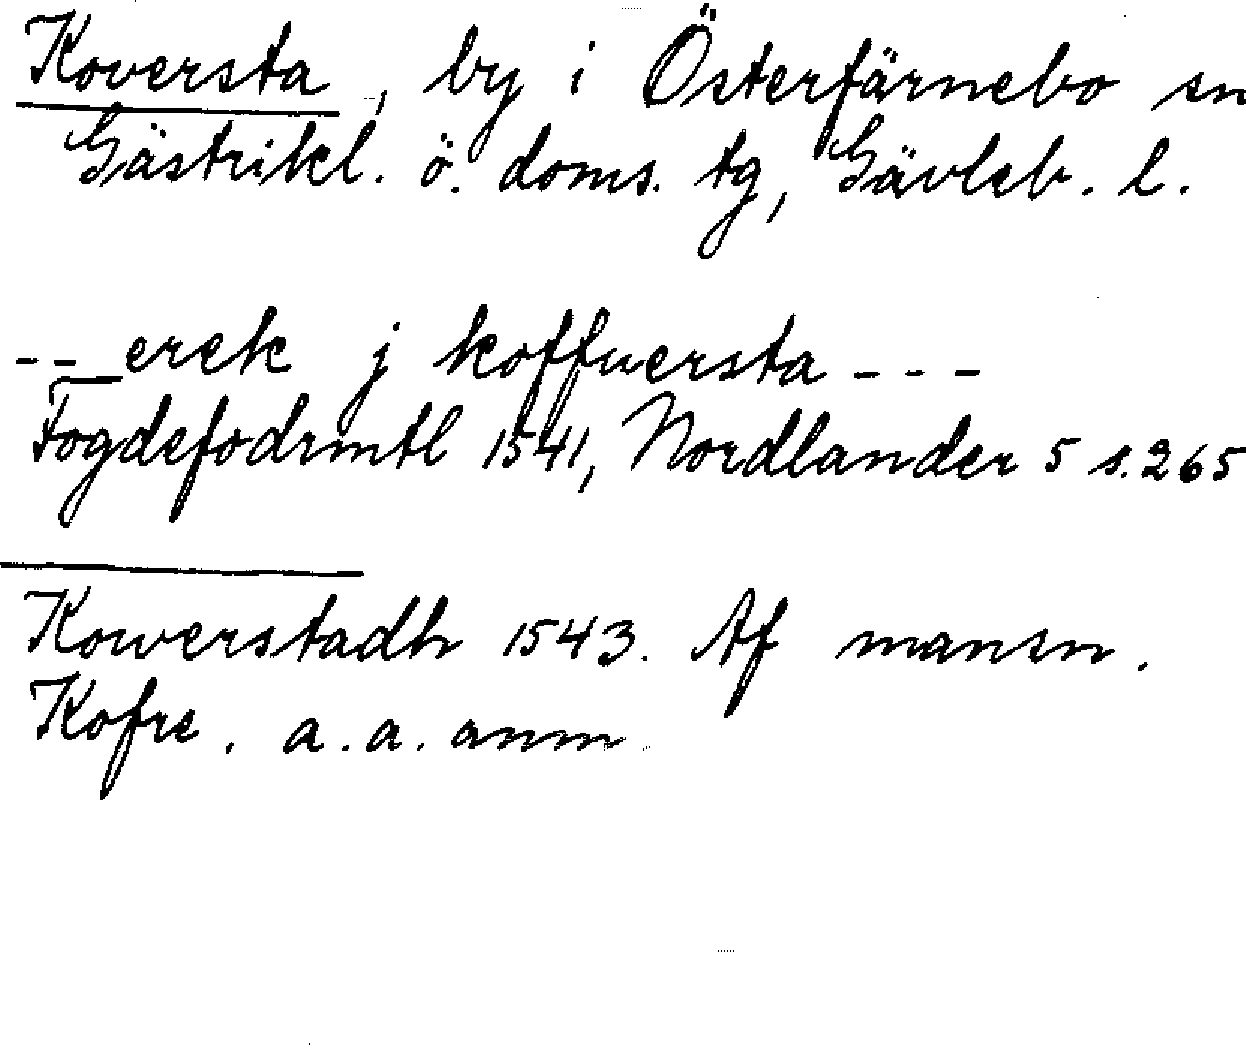 Koversta, by i Österfärnebo sn
Gästrikl. ö. doms. tg, Gävleb. l.
--_erek j koffuersta ---
Fogdefodrmtl 1541, Nordlander 5 s.265
Kowerstadh 1543. Af mansn.
Kofre. a.a. anm.